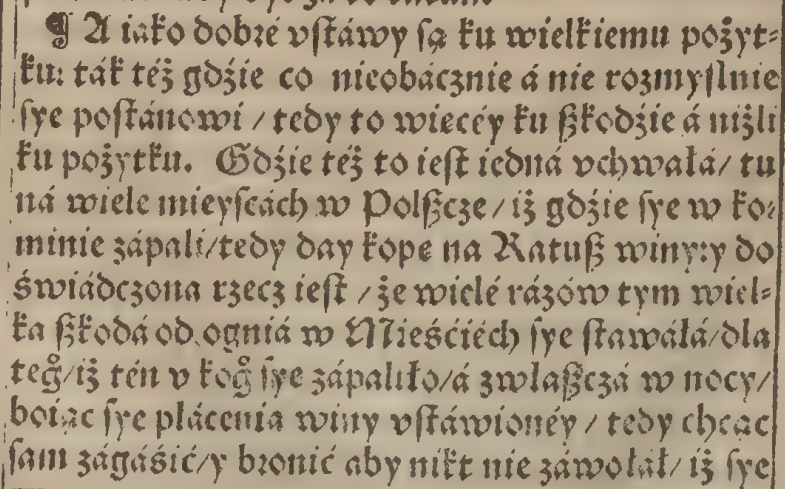 ¶ A iáko dobré vſtáwy ſą ku wielkiemu pożyt⸗
ku: ták téż gdźie co nieobácznie á nie rozmyſlnie
ſye poſtánowi / tedy to wiecéy ku ßkodźie á niżli
ku pożytku. Gdźie téż to ieſt iedná vchwałá / tu
ná wiele mieyſcách w Polßcze / iż gdźie ſye w ko⸗
minie zápali / tedy day kope na Ratuß winy: y do
świádczona rzecz ieſt / że wielé rázów tym wiel⸗
ka ßkodá od ogniá w Mieśćiéch ſye ſtawáłá / dla
teg̊ / iż tén v kog̊ ſye zápaliło / á zwlaßczá w nocy /
boiąc ſye płácenia winy vſtáwionéy / tedy chcąc
ſam zágáśić / y bronić aby nikt nie záwołał / iż ſye